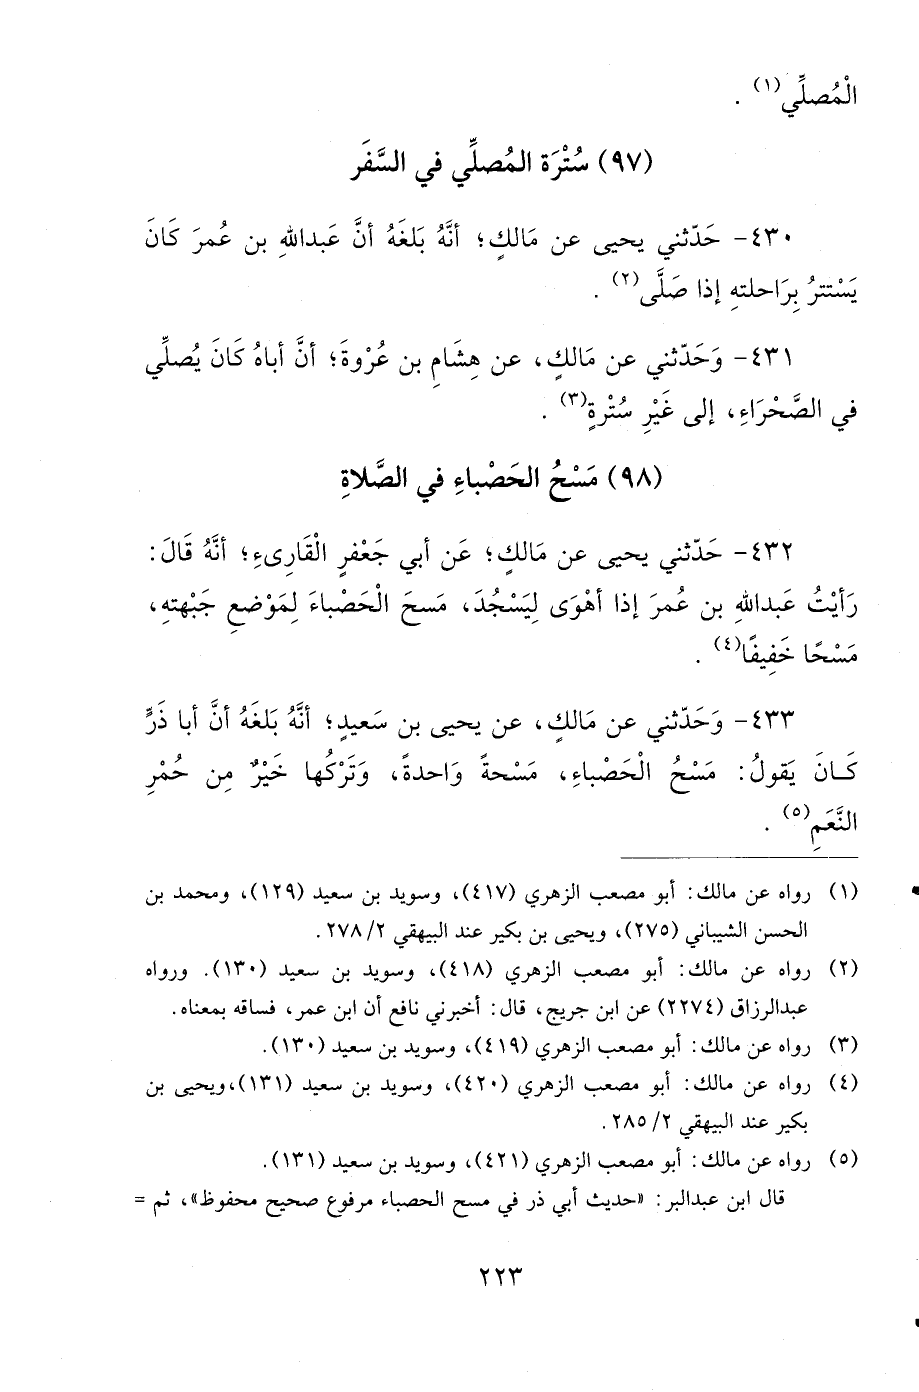 الْمُصلِّي(١) .
(٩٧) سُتْرَة المُصلِّي في السَّفَر
٤٣٠- حَدّثني يحيى عن مَالكٍ؛ أنَّهُ بَلغَهُ أنَّ عَبدالله بن عُمرَ كَانَ
يَسْتترُ بِرَاحلتهِ إذا صَلَّى(٢) .
٤٣١- وَحَدّثني عن مَالكٍ، عن هِشَامِ بن عُرْوةَ؛ أنَّ أباهُ كَانَ يُصلِّي
في الصَّحْرَاءِ، إلى غَيْرِ سُتْرةٍ(٣) .
(٩٨) مَسْحُ الحَصْباءِ في الصَّلاةِ
٤٣٢- حَدّثني يحيى عن مَالكٍ؛ عَن أبي جَعْفرٍ الْقَارىءِ؛ أنَّهُ قَالَ:
رَأيْتُ عَبدالله بن عُمرَ إذا أهْوَى لِيَسْجُدَ، مَسحَ الْحَصْباءَ لِمَوْضعِ جَبْهتهِ،
مَسْحًا خَفِيفًا(٤) .
٤٣٣- وَحَدّثني عن مَالكٍ، عن يحيى بن سَعيدٍ؛ أنَّهُ بَلغَهُ أنَّ أبا ذَرٍّ
كَـانَ يَقولُ: مَسْحُ الْحَصْباءِ، مَسْحةً وَاحدةً، وَتَرْكُها خَيْرٌ مِن حُمْرِ
النَّعَمِ(٥) .
(١) رواه عن مالك: أبو مصعب الزهري (٤١٧)، وسويد بن سعيد (١٢٩)، ومحمد بن
الحسن الشيباني (٢٧٥)، ويحيى بن بكير عند البيهقي ٢/ ٢٧٨.
(٢) رواه عن مالك: أبو مصعب الزهري (٤١٨)، وسويد بن سعيد (١٣٠). ورواه
عبدالرزاق (٢٢٧٤) عن ابن جريج، قال: أخبرني نافع أن ابن عمر، فساقه بمعناه.
(٣) رواه عن مالك: أبو مصعب الزهري (٤١٩)، وسويد بن سعيد (١٣٠).
(٤) رواه عن مالك: أبو مصعب الزهري (٤٢٠)، وسويد بن سعيد (١٣١)،ويحيى بن
بكير عند البيهقي ٢/ ٢٨٥.
(٥) رواه عن مالك: أبو مصعب الزهري (٤٢١)، وسويد بن سعيد (١٣١).
قال ابن عبدالبر: «حديث أبي ذر في مسح الحصباء مرفوع صحيح محفوظ»، ثم =
٢٢٣